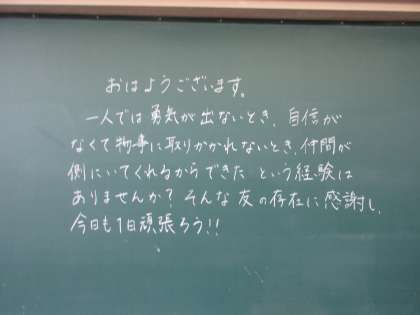 おはようございます。
一人では勇気が出ないとき、自信が
なくて物事に取りかかれないとき、仲間が
側にいてくれるからできた という経験は
ありませんか？ そんな友の存在に感謝し、
今日も1日頑張ろう!!